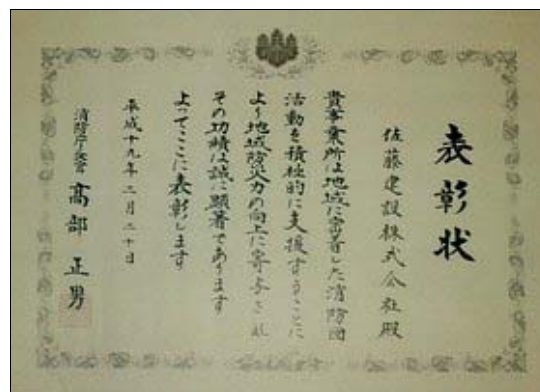 表彰状
佐藤建設株式会社殿
貴事業所は地域に密着した消防団
活動を積極的に支援することに
より地域防災力の向上に寄与され
その功績は誠に顕著であります
よってここに表彰します
平成十九年二月二十日
消防庁長官 高部 正男